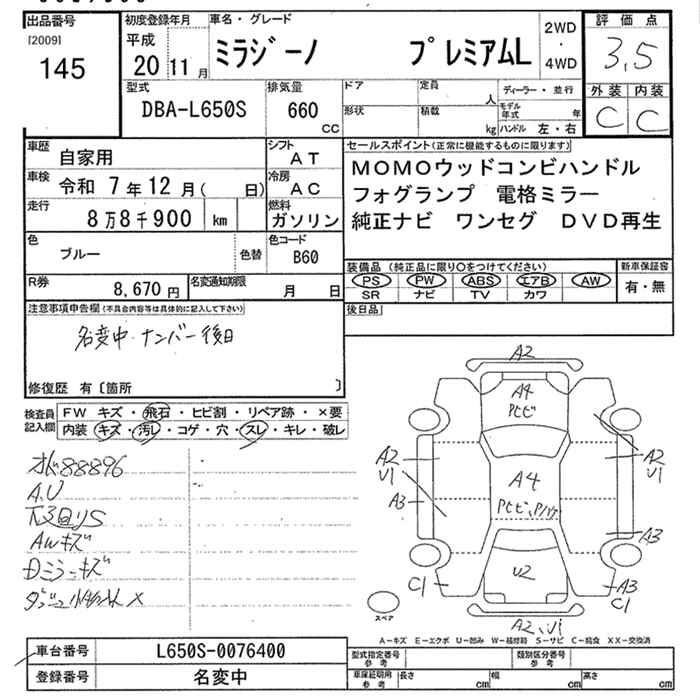 出品番号
[2009]
145
初度登録年月
平成
20 11 月
車名・グレード
ミラジーノ プレミアムL
2WD
・
4WD
評価点
3,5
外装 内装
C C
型式
DBA-L650S
排気量
660
CC
ドア
形状
定員
人
積載
kg
ディーラー・並行
モデル年式 年
ハンドル 左・右
車歴
自家用
シフト
AT
車検
令和 7年 12月( 日)
冷房
AC
走行
8万8千900 km
燃料
ガソリン
色
ブルー
色替
色コード
B60
R券
8,670 円
名変通知期限
月 日
セールスポイント(正常に機能するものに限ります)
MOMOウッドコンビハンドル
フォグランプ 電格ミラー
純正ナビ ワンセグ DVD再生
装備品(純正品に限り○をつけてください)
新車保証書
PS PW ABS エアB AW
有・無
SR ナビ TV カワ
後日品
注意事項申告欄(不具合内容等は具体的に記入して下さい)
名変中 ナンバー後日
修復歴 有〔箇所 〕
検査員
記入欄
FW キズ・飛石・ヒビ割・リペア跡・×要
内装 キズ・汚レ・コゲ・穴・スレ・キレ・破レ
88896
A,U
AWキズ
Dミラーキズ
A2
A4
Pヒビ
A2
U1
A3
A4
A2
U1
A3
A3
C1
C1
U2
A2、U1
スペア
A-キズ E-エクボ U-凹み W-補修跡 S-サビ C-腐食 XX-交換済
車台番号
L650S-0076400
登録番号
名変中
型式指定番号
参考
類別区分番号
参考
車庫証明用
参考
長さ cm 幅 cm 高さ cm